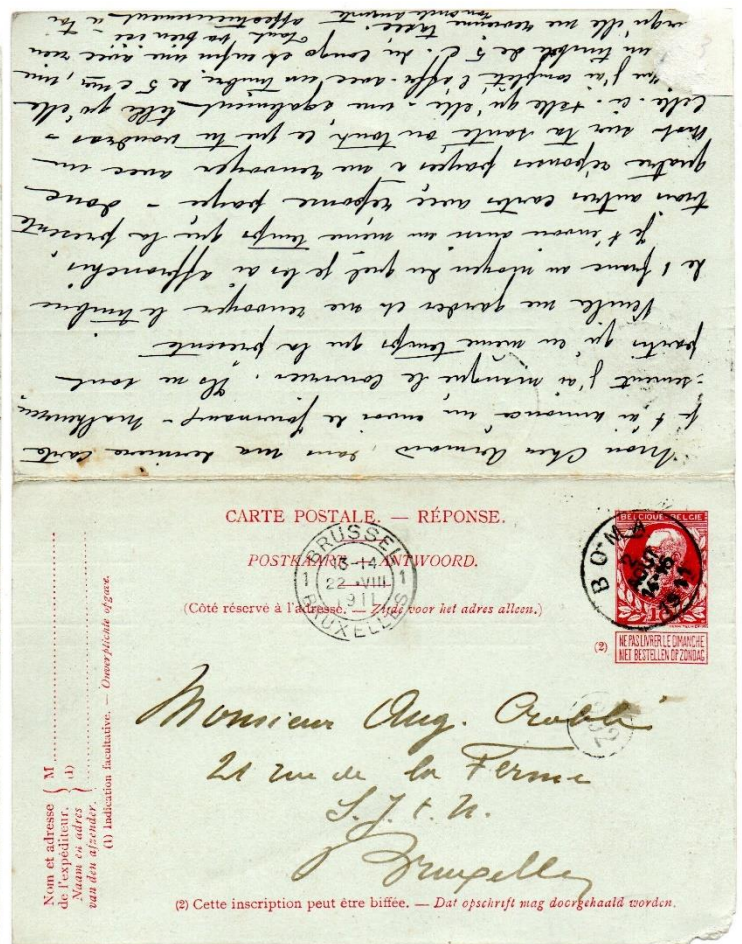 Mon Cher Armand, dans ma dernière carte
je t'ai annoncé un envoi de journaux - malheureu
-sement j'ai manqué le courrier. Ils ne sont
partis qu'en même temps que la présente
Veuille me garder et me renvoyer le timbre
de 1 franc au moyen du quel je les ai affranchis,
je t'envoie aussi en même temps que la présente
trois autres cartes avec réponse payée - donc
quatre réponses payées à me renvoyer avec un
mot sur ta santé ou tout ce que tu voudras -
Celle-ci telle qu'elle - une également telle qu'elle
j'ai complété l'affr. avec un timbre de 5 cmes, une
un timbre de 5 c. du Congo et enfin une avec rien
qu'elle me revienne taxée. Tout va bien ici - à toi
affectueusement
CARTE POSTALE. — RÉPONSE.
POSTKAART — ANTWOORD.
(Côté réservé à l'adresse. — Zijde voor het adres alleen.)
BRUSSEL
1 13-14 1
22 VIII
1911
BRUXELLES
BELGIQUE-BELGIË
BOMA
1911
(2) NE PAS LIVRER LE DIMANCHE
NIET BESTELLEN OP ZONDAG
Monsieur Aug.
21 rue de la Ferme
S. J. t. N.
Bruxelles
Nom et adresse de l'expéditeur.
Naam en adres van den afzender.
M
(1)
(1) Indication facultative. — Onverplichte opgave.
(2) Cette inscription peut être biffée. — Dat opschrift mag doorgehaald worden.